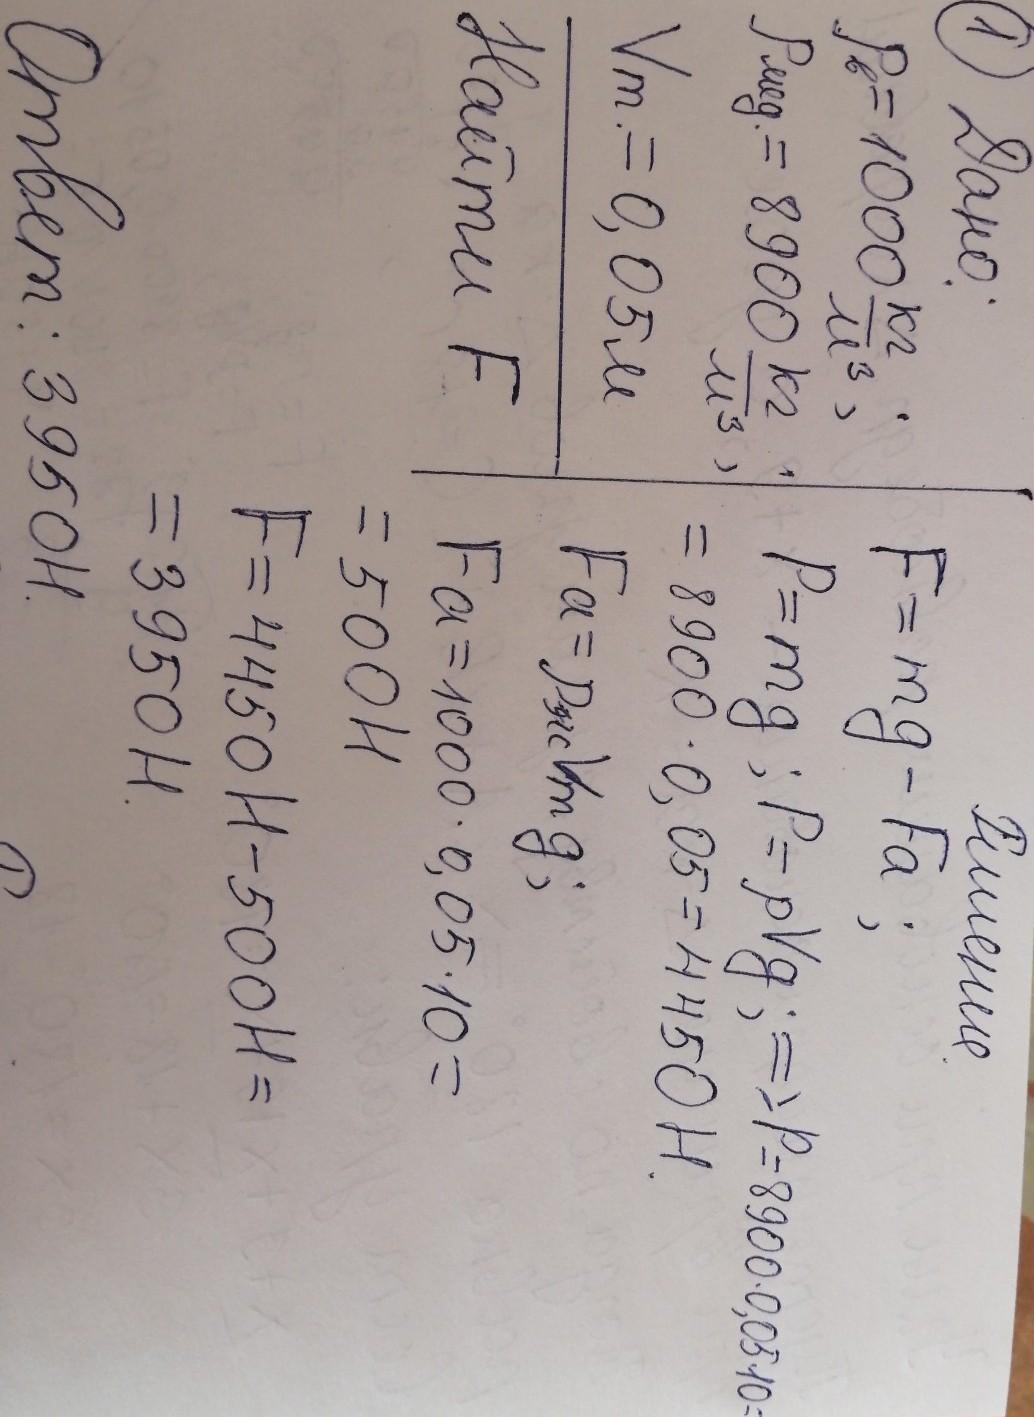 ① Дано:
ρв = 1000 кг/м³;
ρмед. = 8900 кг/м³;
Vт. = 0,05м
Найти F
Решение
F = mg - Fa;
P = mg; P = ρVg; => P = 8900·0,05·10 =
= 8900·0,05 = 4450Н.
Fa = ρжVтg;
Fa = 1000·0,05·10 =
= 500Н
F = 4450Н - 500Н =
= 3950Н.
Ответ: 3950Н.